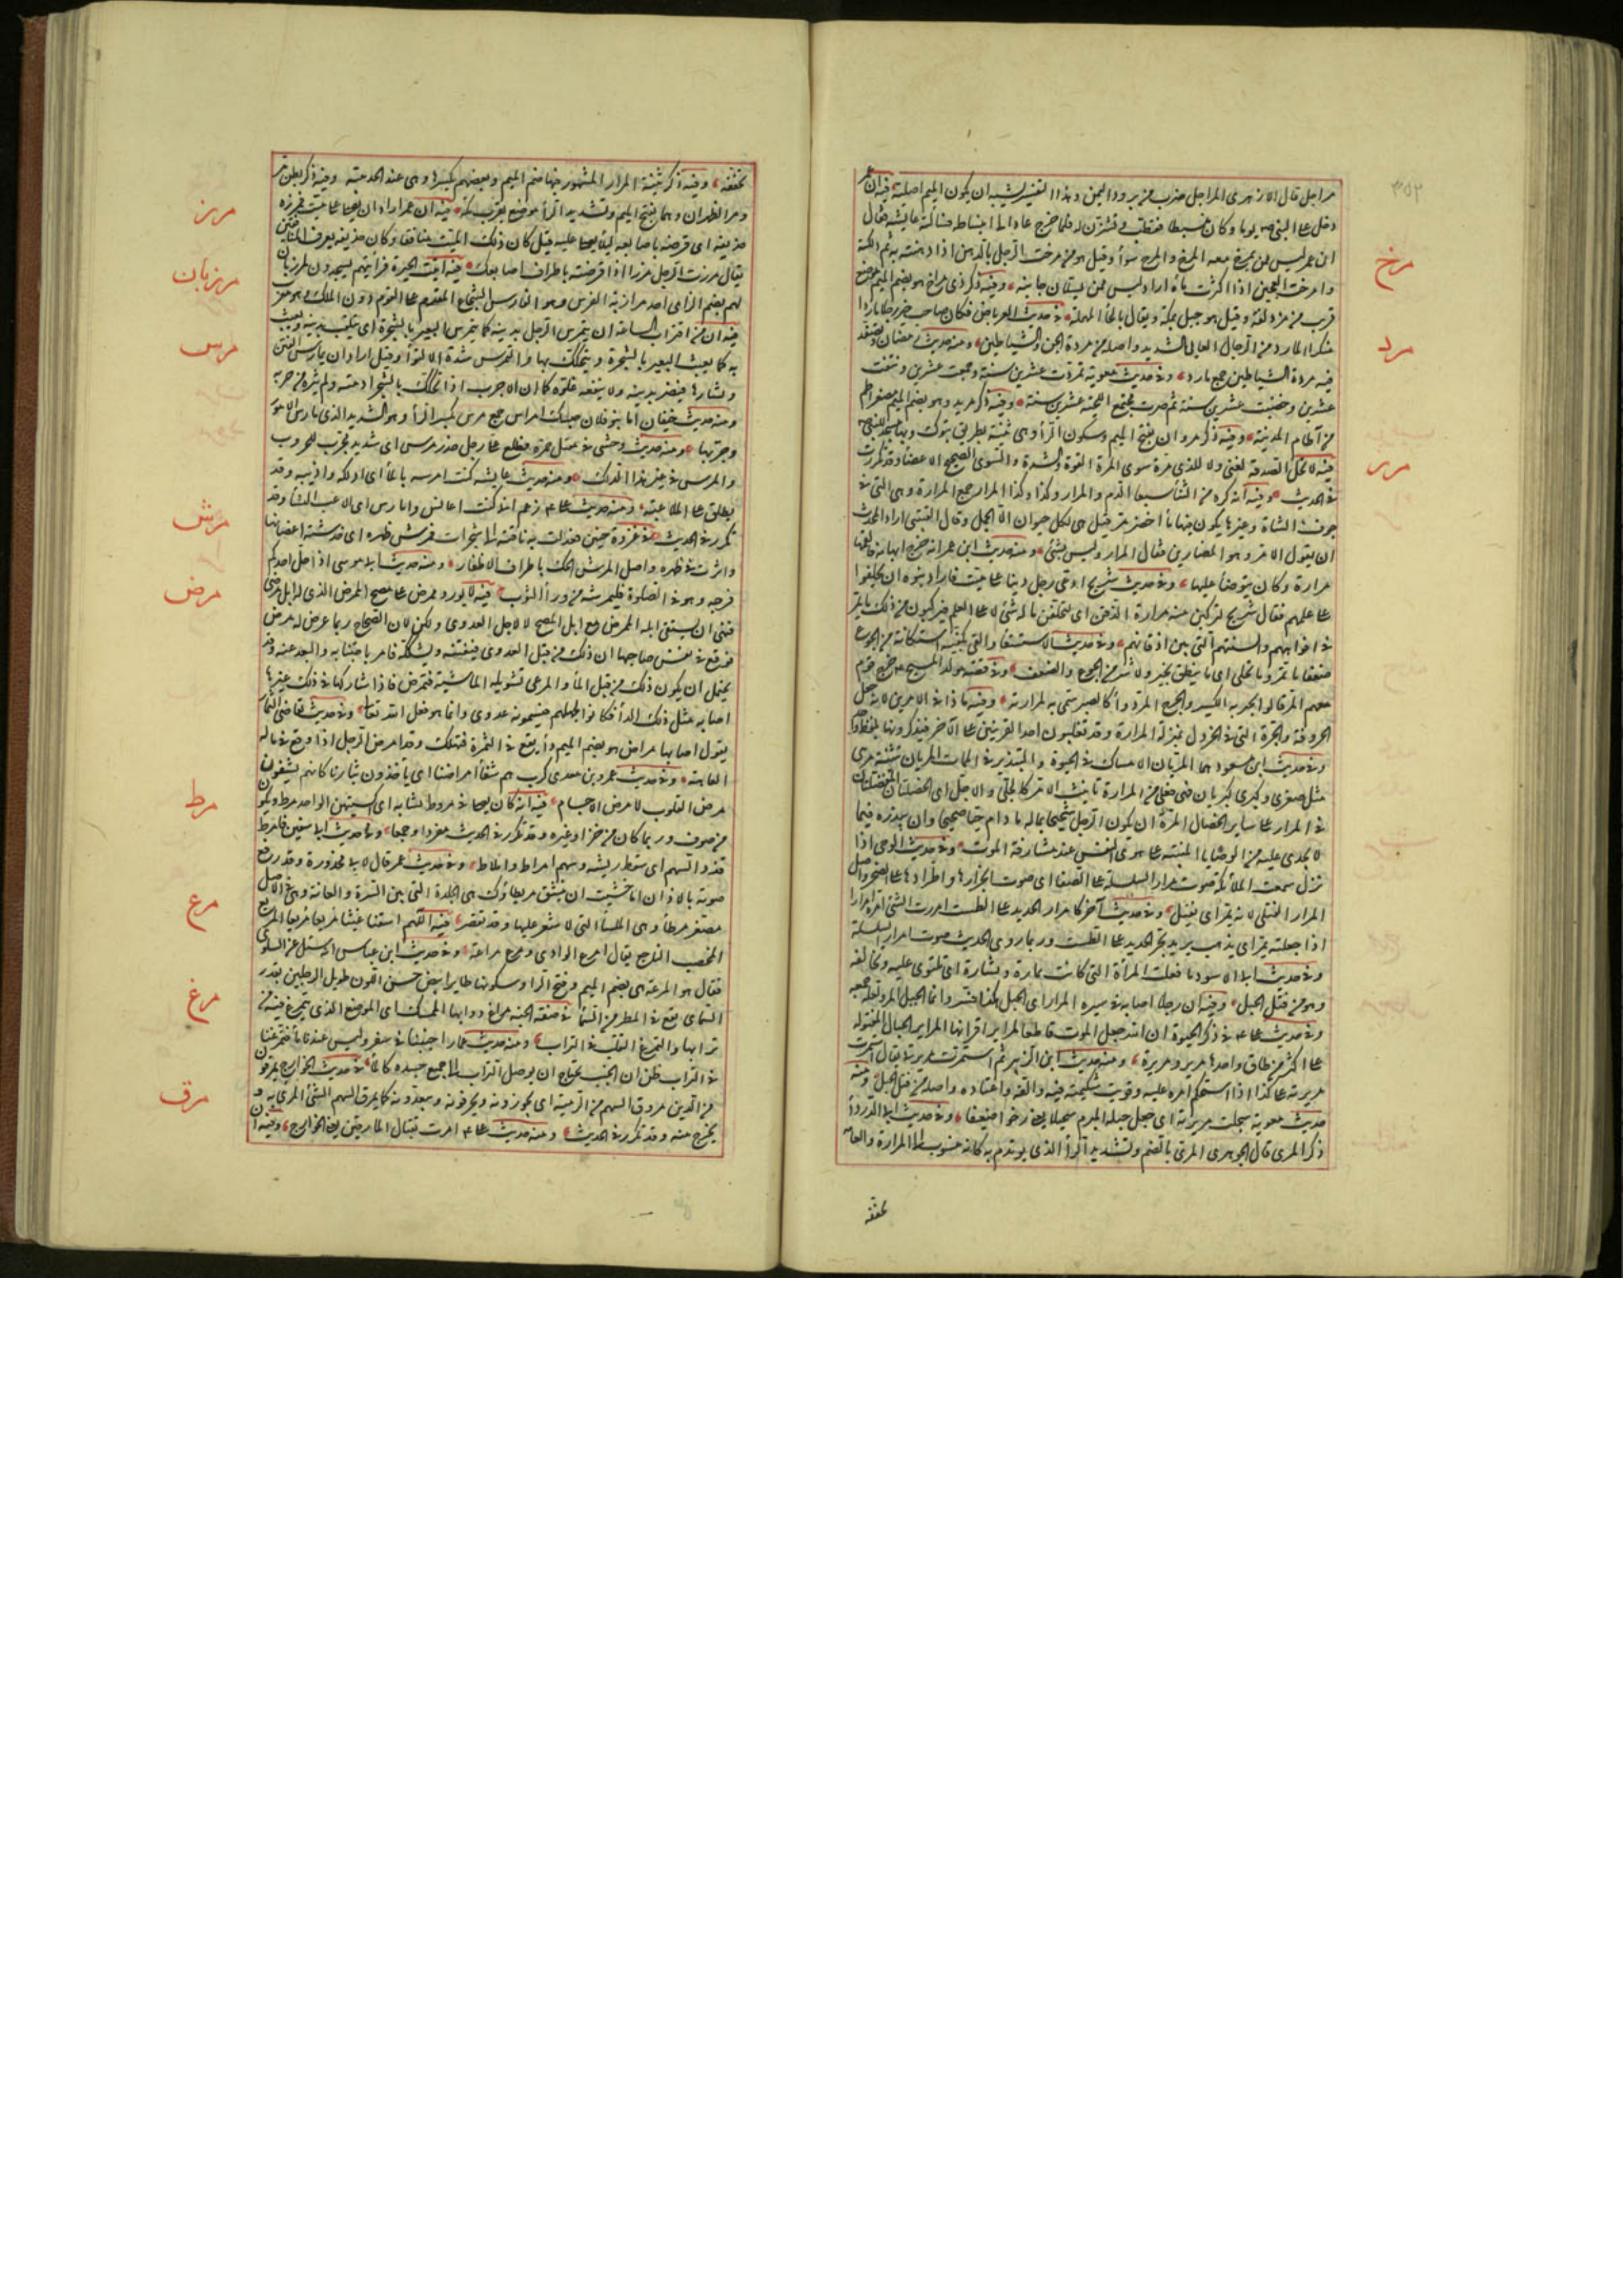 مراجل قال الازهرى المراجل ضرب من برود اليمن وهذا التفسير يشبه ان يكون الميم اصلية فيه ان عمر
دخل على النبى يوما وكان منبسطا فقطب وتشزن له فلما خرج عاد الى انبساطه فسألته عايشة فقال
ان عمر ليس ممن يمرخ معه المرخ والمزح سواء وقيل هو من مرخت الرجل بالدهن اذا دهنته به ثم دلكته
وامرخت العجين اذا اكثرت ماءه اراد ليس ممن يستلان جانبه وفيه ذكر ذى مراخ هو بضم الميم موضع
قرب من مزدلفة وقيل هو جبل بمكة ويقال بالحاء المهملة فى حديث العرباض وكان صاحب خيبر رجلا ماردا
منكرا المارد من الرجال العاتى الشديد واصله من مردة الجن والشياطين ومنه حديث رمضان وتصفد
فيه مردة الشياطين جمع مارد وفى حديث معوية تمردت عشرين سنة وجمعت عشرين ونتفت
عشرين وخضبت عشرين سنة ثم صرت مجتمع اللحية عشرين سنة وفيه ذكر مريد وهو بضم الميم مصغر اطم
من آطام المدينة وفيه ذكر مروان بفتح الميم وسكون الراء وهى ثنية بطريق تبوك وبها مسجد للنبى
فيه لا تحل الصدقة لغنى ولا لذى مرة سوى المرة القوة والشدة والسوى الصحيح الاعضاء وقد تكررت
فى الحديث وفيه انه كره من الشاء سبعا الدم والمرار وكذا وكذا المرار جمع المرارة وهى التى فى
جوف الشاة وغيرها يكون فيها ماء اخضر مر قيل هى لكل حيوان الا الجمل وقال القتيبى اراد المحدث
ان يقول الامر وهو المصارين فقال المرار وليس بشئ ومنه حديث ابن عمر انه جرح ابهامه فالقمها
مرارة وكان يتوضأ عليها وفى حديث شريح ادعى رجل دينا على ميت فاراد بنوه ان يحلفوا
على علمهم فقال شريح لتركبن منه مرارة الذقن اى لتحلفن ما له شئ لا على العلم فيركبون من ذلك ما يمر
فى افواههم والسنتهم التى بين اذقانهم وفى حديث الاستسقاء والقى بكفيه استكانة من الجوع
ضعفا ما يمر وما يحلى اى ما ينطق بخير ولا شر من الجوع والضعف وفى قصة مولد المسيح خرج قوم
معهم المر قالوا نجبر به الكسير والجرح المر دواء كالصبر سمى به لمرارته وفيه ماذا فى الامرين
الحروفة والحرة التى فى الخردل بمنزلة المرارة وقد تغلبون احد القرينين على الآخر فيذكرونهما بلفظ واحد
وفى حديث ابن مسعود هما المريان الامساك فى الحيوة والتبذير فى الممات المريان تثنية مرى
مثل صغرى وكبرى كبريان فهى فعلى من المرارة تأنيث الامر كالجلى والاجل اى الخصلتان المفضلتان
فى المرار على ساير الخصال المرة ان يكون الرجل شحيحا بماله ما دام حيا صحيحا وان يبذره فيما
لا يجدى عليه من الوصايا المبنية على هوى النفس عند مشارفة الموت وفى حديث الوحى اذا
نزل سمعت الملائكة صوت مرار السلسلة على الصفا اى صوت انجرارها واطرادها على الصخر واصل
المرار الفتل لانه يمر اى يفتل وفى حديث آخر كامرار الحديد على الطست امررت الشئ امره امرارا
اذا جعلته يمر اى يذهب يريد بجر الحديد على الطست وربما روى الحديث صوت امرار السلسلة
وفى حديث ابى الاسود ما فعلت المرأة التى كانت تماره وتشاره اى تلتوى عليه وتخالفه
وهو من فتل الحبل وفيه ان رجلا اصابه فى سيره المرار اى الحبل هكذا فسر وانما الحبل المر ولعله جمعه
وفى حديث على فى ذكر الحيوة ان الله جعل الموت قاطعا لمراير اقرانها المراير الحبال المفتولة
على اكثر من طاق واحدها مرير ومريرة ومنه حديث ابن الزبير ثم استمرت مريرتى يقال استمرت
مريرته على كذا اذا استحكم امره عليه وقويت شكيمته فيه والفه واعتاده واصله من فتل الحبل ومنه
حديث معوية سحلت مريرته اى جعل حبله المبرم سحيلا يعنى رخوا ضعيفا وفى حديث ابى الدرداء
ذكر المرى قال الجوهرى المرى بالضم وتشديد الراء الذى يؤتدم به كانه منسوب الى المرارة والعامة
تخففه
مرخ
مرد
مرر
٣٥٢
تخففه وفيه ذكر ثنية المرار المشهور فيها ضم الميم وبعضهم يكسرها وهى عند الحديبية وفيه ذكر بطن مر
ومر الظهران وهما بفتح الميم وتشديد الراء موضع بقرب مكة فيه ان عمر اراد ان يصلى على ميت فمرزه
حذيفة اى قرصه باصابعه لئلا يصلى عليه قيل كان ذلك الميت منافقا وكان حذيفة يعرف المنافقين
يقال مرزت الرجل مرزا اذا قرصته باطراف اصابعك فيه اتيت الحيرة فرأيتهم يسجدون لمرزبان
لهم بضم الزاى احد مرازبة الفرس وهو الفارس الشجاع المقدم على القوم دون الملك وهو معرب
فيه ان من اقتراب الساعة ان يتمرس الرجل بدينه كما يتمرس البعير بالشجرة اى يتلعب بدينه ويعبث
به كما يعبث البعير بالشجرة ويتحكك بها والتمرس شدة الالتواء وقيل اراد ان يمارس الفتن
ويشارها فيضر بدينه ولا ينفعه غلوه كما ان الاجرب اذا تحكك بالشجر ادمته ولم تبره من جربه
ومنه حديث خيفان اما بنو فلان فحسك امراس جمع مرس بكسر الراء وهو الشديد الذى مارس الامور
وجربها ومنه حديث وحشى فى مقتل حمزة فطلع على رجل حذر مرس اى شديد مجرب للحروب
والمرس فى غير هذا الدلك ومنه حديث عايشة كنت امرسه بالماء اى ادلكه واذيبه وقد
يطلق على الملاعبة ومنه حديث على زعم انى كنت اعافس وامارس اى الاعب النساء وقد
تكرر فى الحديث فى غزوة حنين فعدلت به ناقته الى شجرات فمرشن ظهره اى خدشته اغصانها
واثرت فى ظهره واصل المرش الحك باطراف الاظفار ومنه حديث ابى موسى اذا حك احدكم
فرجه وهو فى الصلوة فليمرشه من وراء الثوب فيه لا يورد ممرض على مصح الممرض الذى له ابل مرضى
فنهى ان يسقى ابله الممرض مع ابل المصح لا لاجل العدوى ولكن لان الصحاح ربما عرض له مرض
فوقع فى نفس صاحبها ان ذلك من قبل العدوى فيفتنه ويشككه فامر باجتنابه والبعد عنه وقد
يحتمل ان يكون ذلك من قبل الماء والمرعى تستوبله الماشية فتمرض فاذا شاركها فى ذلك غيرها
اصابه مثل ذلك الداء فكانوا لجهلهم يسمونه عدوى وانما هو فعل الله تعالى وفى حديث تقاضى الثمار
يقول اصابها مراض هو بضم الميم داء يقع فى الثمرة فتهلك وقد امرض الرجل اذا وقع فى ماله
العاهة وفى حديث عمرو بن معدى كرب هم شفاء امراضنا اى يأخذون بثارنا كانهم يشفون
مرض القلوب لا مرض الاجسام فيه انه كان يصلى فى مروط نسائه اى اكسيتهن الواحد مرط ويكون
من صوف وربما كان من خز او غيره وقد تكرر فى الحديث مفردا وجمعا وفى حديث ابى سفين فامرط
قذذ السهم اى سقط ريشه وسهم امرط واملط وفى حديث عمر قال لابى محذورة وقد رفع
صوته بالاذان اما خشيت ان ينشق مريطاؤك هى الجلدة التى بين السرة والعانة وهى فى الاصل
مصغر مرطاء وهى الملساء التى لا شعر عليها وقد تقصر فيه اللهم اسقنا غيثا مريعا مربعا المريع
المخصب الناجع يقال امرع الوادى ومرع مراعة وفى حديث ابن عباس انه سئل عن السلوى
فقال هو المرعة هى بضم الميم وفتح الراء وسكونها طاير ابيض حسن اللون طويل الرجلين بقدر
السمانى يقع فى المطر من السماء فى صفة الجنة مراغ دوابها المسك اى الموضع الذى يتمرغ فيه من
ترابها والتمرغ التقلب فى التراب ومنه حديث عمار اجنبنا فى سفر وليس عندنا ماء فتمرغنا
فى التراب ظن ان الجنب يحتاج ان يوصل التراب الى جميع جسده كالماء فى حديث الخوارج يمرقون
من الدين مروق السهم من الرمية اى يجوزونه ويخرقونه ويبعدونه كما يمرق السهم الشئ المرمى به و
يخرج منه وقد تكرر فى الحديث ومنه حديث على امرت بقتال المارقين يعنى الخوارج وفيه ان
مرز
مرزبان
مرس
مرش
مرض
مرط
مرع
مرغ
مرق